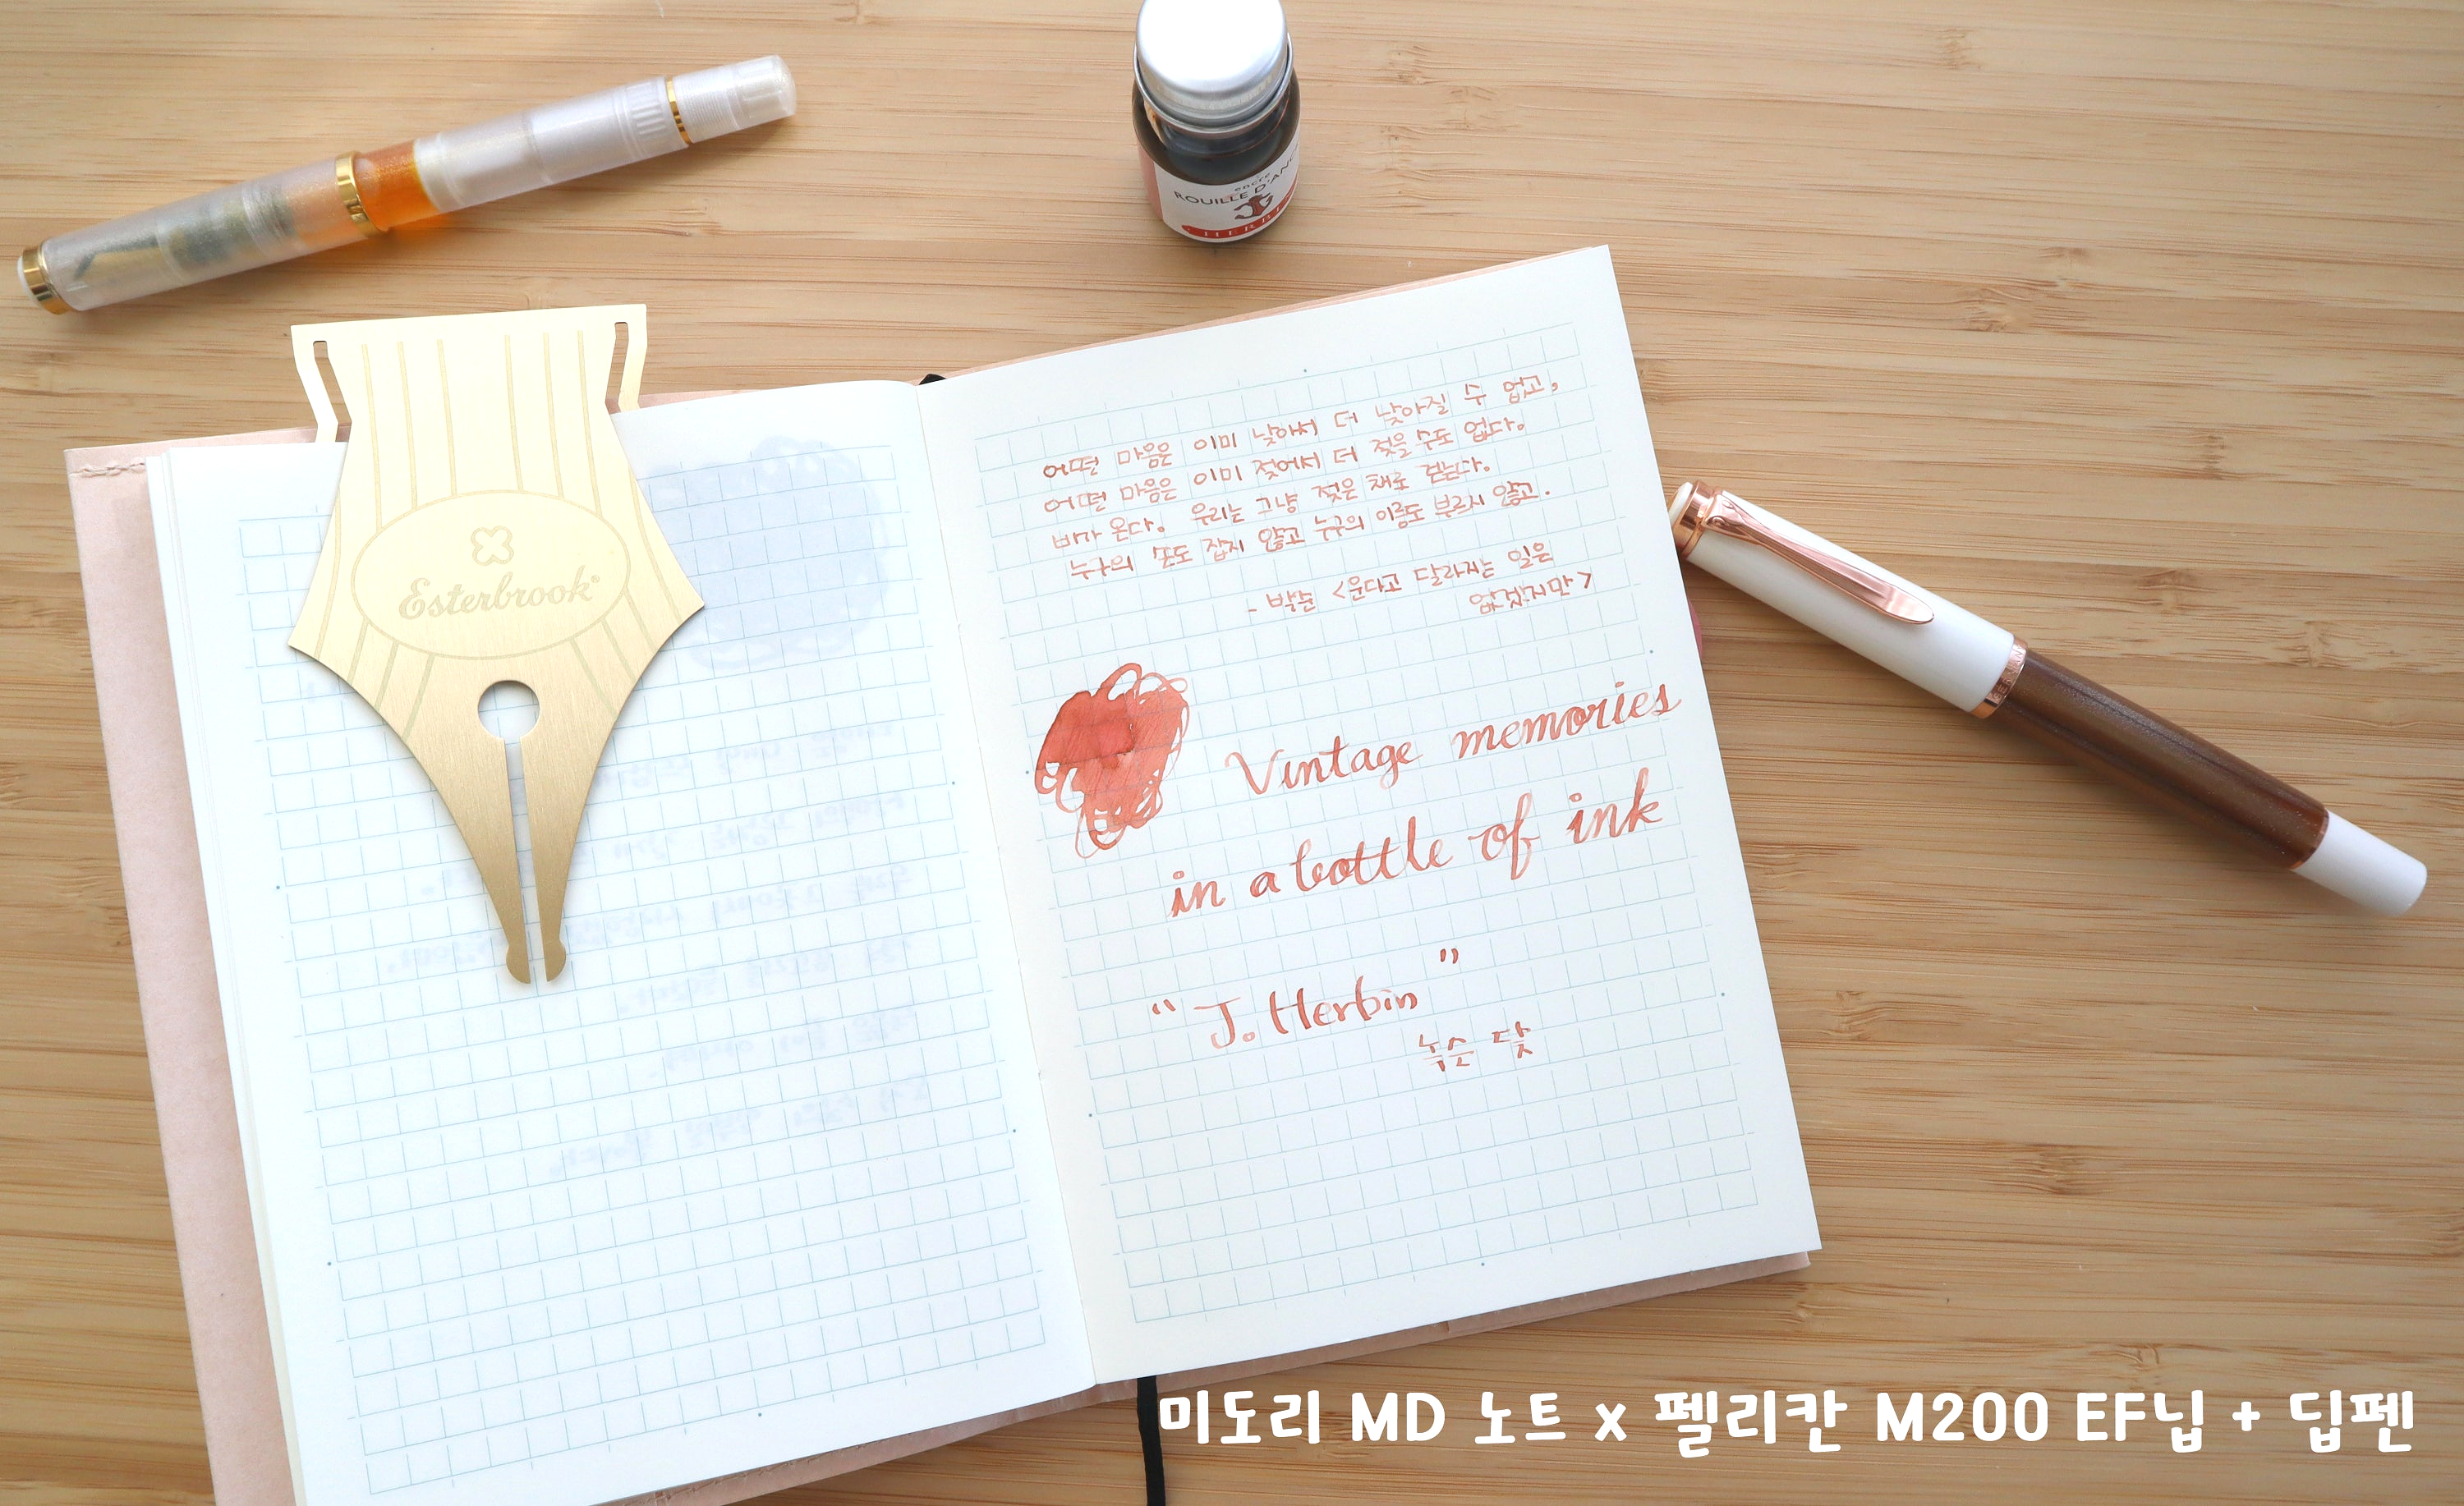 encre
ROUILLE D'ANC
HERBI
Esterbrook
어떤 마음은 이미 낮아서 더 낮아질 수 없고,
어떤 마음은 이미 젖어서 더 젖을 수도 없다.
비가 온다. 우리는 그냥 젖은 채로 걷는다.
누구의 손도 잡지 않고 누구의 이름도 부르지 않고.
- 박준 <운다고 달라지는 일은
없겠지만>
Vintage memories
in a bottle of ink
“ J. Herbin ”
녹슨 닻
미도리 MD 노트 x 펠리칸 M200 EF닙 + 딥펜